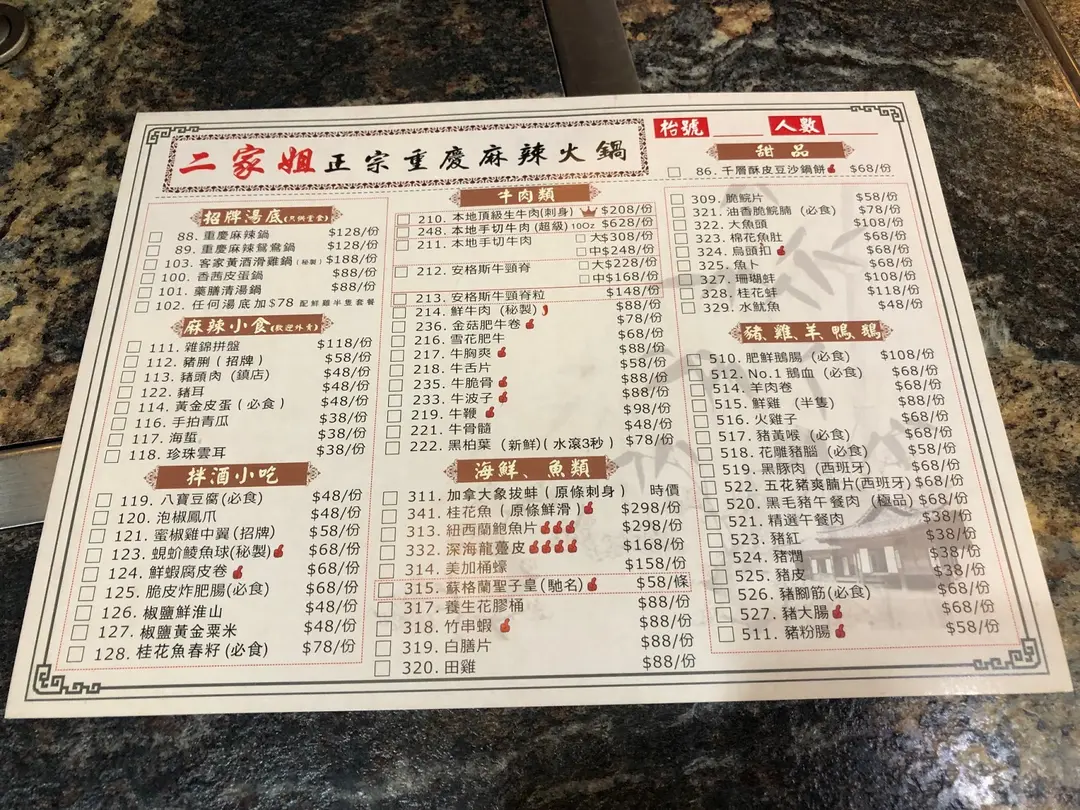 二家姐正宗重慶麻辣火鍋
枱號 人數
招牌湯底(只供堂食)
88. 重慶麻辣鍋 $128/份
89. 重慶麻辣鴛鴦鍋 $128/份
103. 客家黃酒滑雞鍋(秘製) $188/份
100. 香茜皮蛋鍋 $88/份
101. 藥膳清湯鍋 $88/份
102. 任何湯底加$78 配鮮雞半隻套餐
麻辣小食(歡迎外賣)
111. 雜錦拼盤 $118/份
112. 豬脷(招牌) $58/份
113. 豬頭肉(鎮店) $48/份
122. 豬耳 $48/份
114. 黃金皮蛋(必食) $48/份
116. 手拍青瓜 $38/份
117. 海蜇 $38/份
118. 珍珠雲耳 $38/份
拌酒小吃
119. 八寶豆腐(必食) $48/份
120. 泡椒鳳爪 $48/份
121. 蜜椒雞中翼(招牌) $58/份
123. 蜆蚧鯪魚球(秘製) $68/份
124. 鮮蝦腐皮卷 $68/份
125. 脆皮炸肥腸(必食) $68/份
126. 椒鹽鮮淮山 $48/份
127. 椒鹽黃金粟米 $48/份
128. 桂花魚春籽(必食) $78/份
牛肉類
210. 本地頂級生牛肉(刺身) $208/份
248. 本地手切牛肉(超級)10Oz $628/份
211. 本地手切牛肉 大$308/份
中$248/份
212. 安格斯牛頸脊 大$228/份
中$168/份
213. 安格斯牛頸脊粒 $148/份
214. 鮮牛肉(秘製) $88/份
236. 金菇肥牛卷 $78/份
216. 雪花肥牛 $68/份
217. 牛胸爽 $88/份
218. 牛舌片 $58/份
235. 牛脆骨 $88/份
233. 牛波子 $88/份
219. 牛鞭 $98/份
221. 牛骨髓 $48/份
222. 黑柏葉(新鮮)(水滾3秒) $78/份
海鮮、魚類
311. 加拿大象拔蚌(原條刺身) 時價
341. 桂花魚(原條鮮滑) $298/份
313. 紐西蘭鮑魚片 $298/份
332. 深海龍躉皮 $168/份
314. 美加桶蠔 $158/份
315. 蘇格蘭聖子皇(馳名) $58/條
317. 養生花膠桶 $88/份
318. 竹串蝦 $88/份
319. 白膳片 $88/份
320. 田雞 $88/份
甜品
86. 千層酥皮豆沙鍋餅 $68/份
309. 脆鯇片 $58/份
321. 油香脆鯇腩(必食) $78/份
322. 大魚頭 $108/份
323. 棉花魚肚 $68/份
324. 烏頭扣 $68/份
325. 魚卜 $68/份
327. 珊瑚蚌 $108/份
328. 桂花蚌 $118/份
329. 水魷魚 $48/份
豬雞羊鴨鵝
510. 肥鮮鵝腸(必食) $108/份
512. No.1 鵝血(必食) $68/份
514. 羊肉卷 $68/份
515. 鮮雞(半隻) $88/份
516. 火雞子 $68/份
517. 豬黃喉(必食) $68/份
518. 花雕豬腦(必食) $58/份
519. 黑豚肉(西班牙) $68/份
522. 五花豬爽腩片(西班牙) $68/份
520. 黑毛豬午餐肉(極品) $68/份
521. 精選午餐肉 $38/份
523. 豬紅 $38/份
524. 豬潤 $38/份
525. 豬皮 $38/份
526. 豬腳筋(必食) $68/份
527. 豬大腸 $68/份
511. 豬粉腸 $58/份